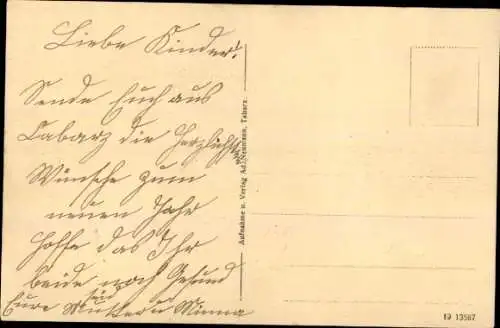 Liebe Kinder!
Sende Euch aus
Cabarz die herzlichsten
Wünsche zum
neuen Jahr
hoffe das Ihr
beide noch Gesund
seid
Eure Mutter u Minna
Aufnahme u. Verlag Ad. Neumann, Tabarz.
19 13587